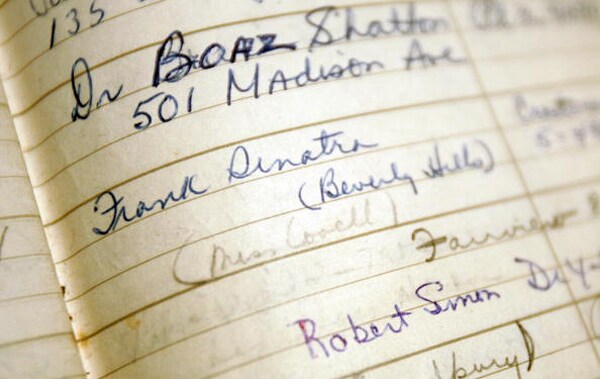 135
Dr Boaz Shatton
501 Madison Ave
Frank Sinatra
(Beverly Hills)
(Miss Lovell)
Fairview
Robert Simon